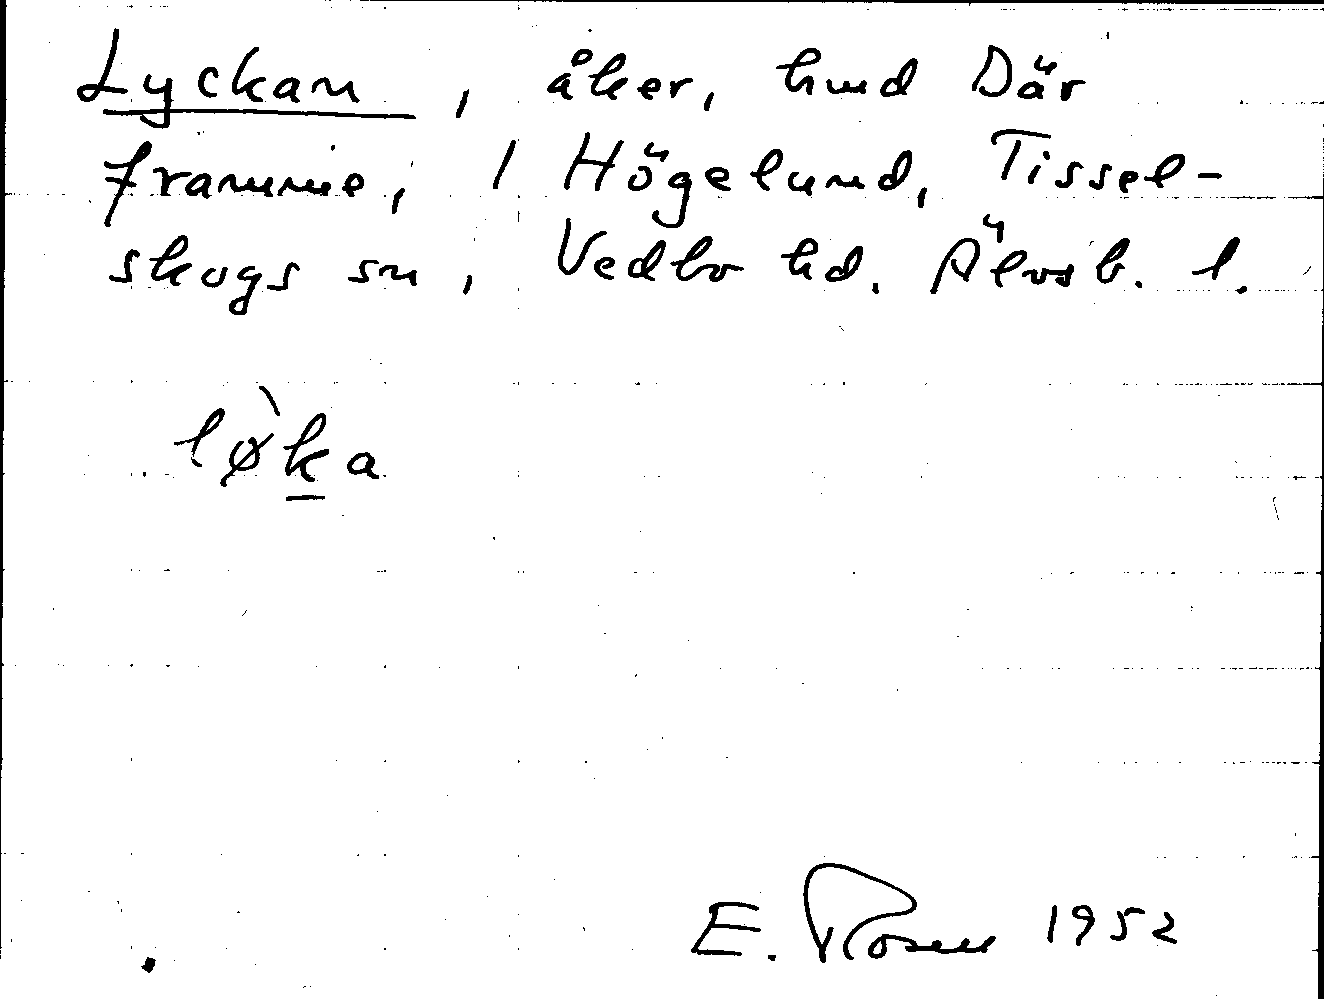 Lyckan, åker, hmd Där
framme, 1 Högelund, Tissel-
skogs sn, Vedbo hd. Älvsb. l.
lø̀k̲a
E. Rosen 1952